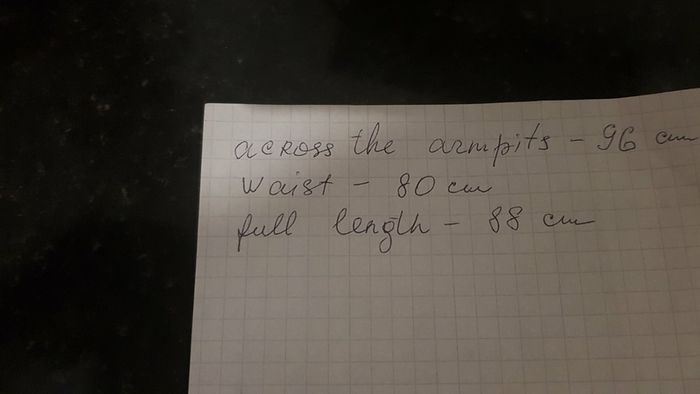 across the armpits - 96 cm
waist - 80 cm
full length - 88 cm